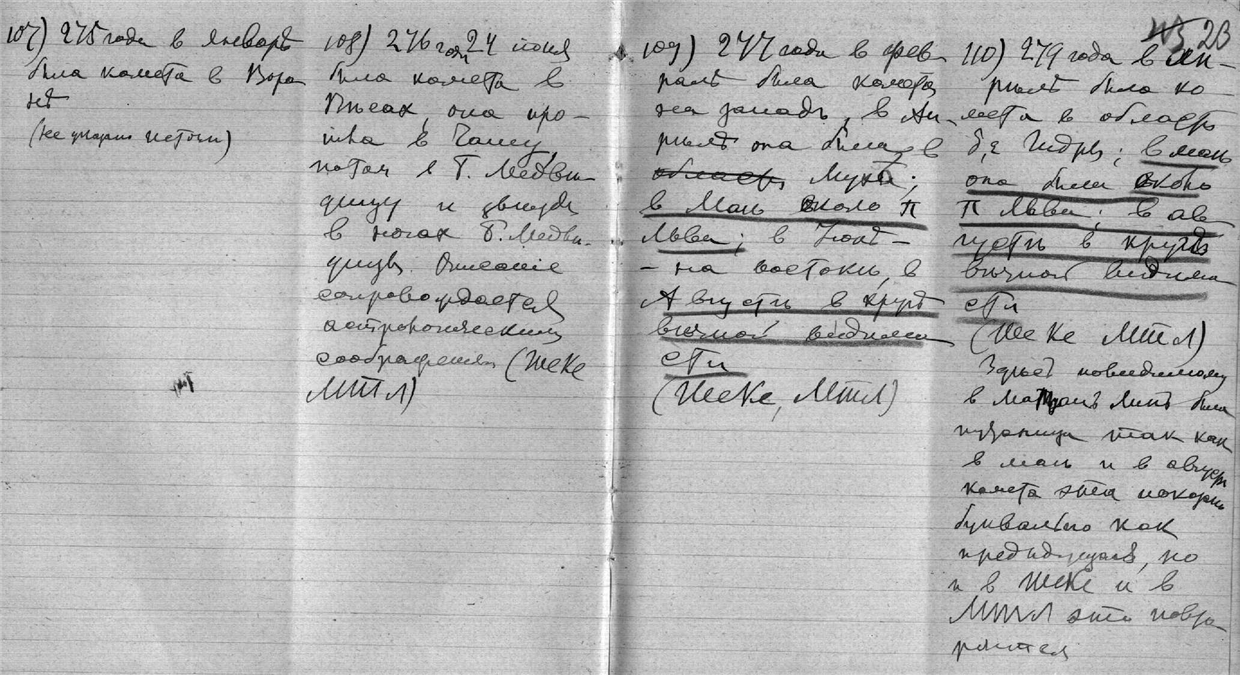 107) 275 года в январѣ
была комета в Воро
нѣ
(не указано источн)
108) 276 год 24 июня
была комета в
Вѣсах, она про-
шла в Чашу,
потом в Б. Медвѣ-
дицу и
в ногах Б. Медвѣ-
дицы. Описание
сопровождается
астрономическим
соображения (ШеКе
МТЛ)
109) 277 года в фев
ралѣ была комета
на западѣ, в Ап-
рѣлѣ она была в
области Мухи;
в Маѣ около π
Льва; в Iюнѣ -
- на востокѣ, в
Августѣ в кругѣ
вѣчной видимо
сти
(ШеКе, МТЛ)
23
110) 279 года в Ап-
рѣлѣ была ко-
мета в области
δ, ε Гидры; в маѣ
она была около
π Льва; в ав
густѣ в кругѣ
вѣчной видимо
сти
(ШеКе МТЛ)
Здѣсь повидимому
в была
путаница так как
в маѣ и в август
комета эта
буквально как
предидущая, но
и в ШеКе и в
МТЛ это повто
ряется